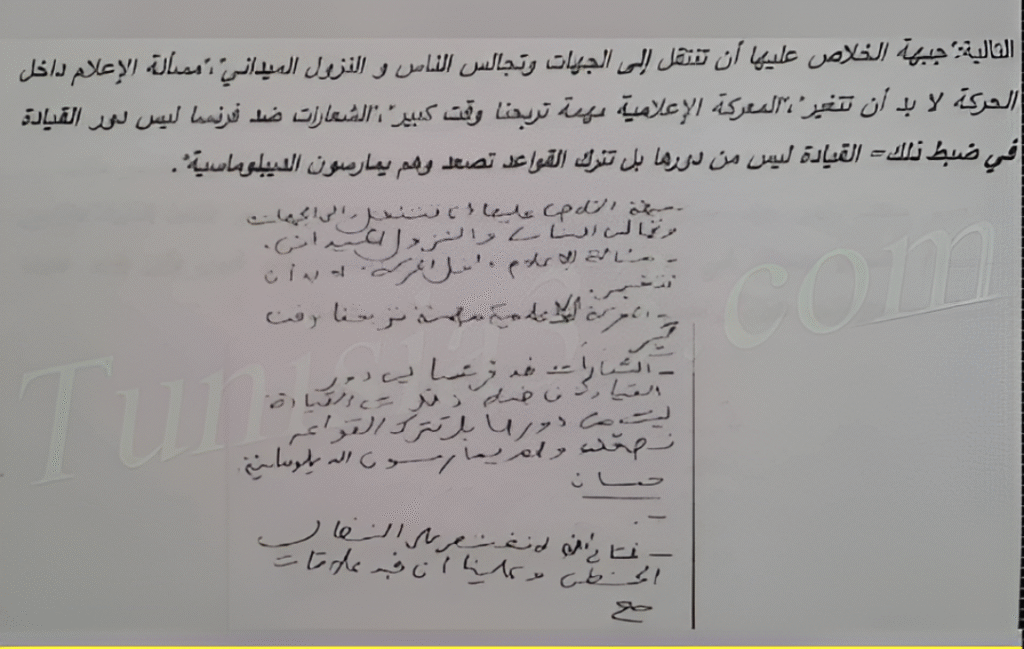 التالية:"جبهة الخلاص عليها أن تنتقل إلى الجهات وتجالس الناس و النزول الميداني"،"مسألة الإعلام داخل
الحركة لا بد أن تتغير"،"المعركة الإعلامية مهمة تربحنا وقت كبير"،"الشعارات ضد فرنسا ليس دور القيادة
في ضبط ذلك= القيادة ليس من دورها بل تترك القواعد تصعد وهم يمارسون الديبلوماسية".
- جبهة الخلاص عليها أن تنتقل إلى الجهات
وتجالس الناس والنزول الميداني.
- مسألة الإعلام داخل الحركة لا بد أن
تتغير.
- المعركة الإعلامية مهمة تربحنا وقت
كبير
- الشعارات ضد فرنسا ليس دور
القيادة في ضبط ذلك = القيادة
ليست من دورها بل تترك القواعد
تصعد وهم يمارسون الديبلوماسية
حسان
-
- لا نقتصر على النضال
و علينا أن علاقات
مع
Tunisia .com